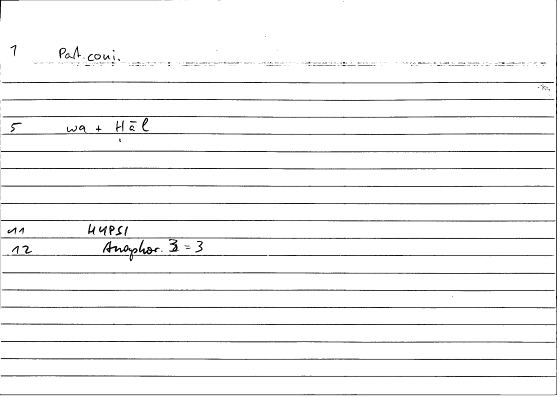 1 Pat. coni.
5 wa + Ḥāl
11 HYPSI
12 Anaphor. 3 = 3